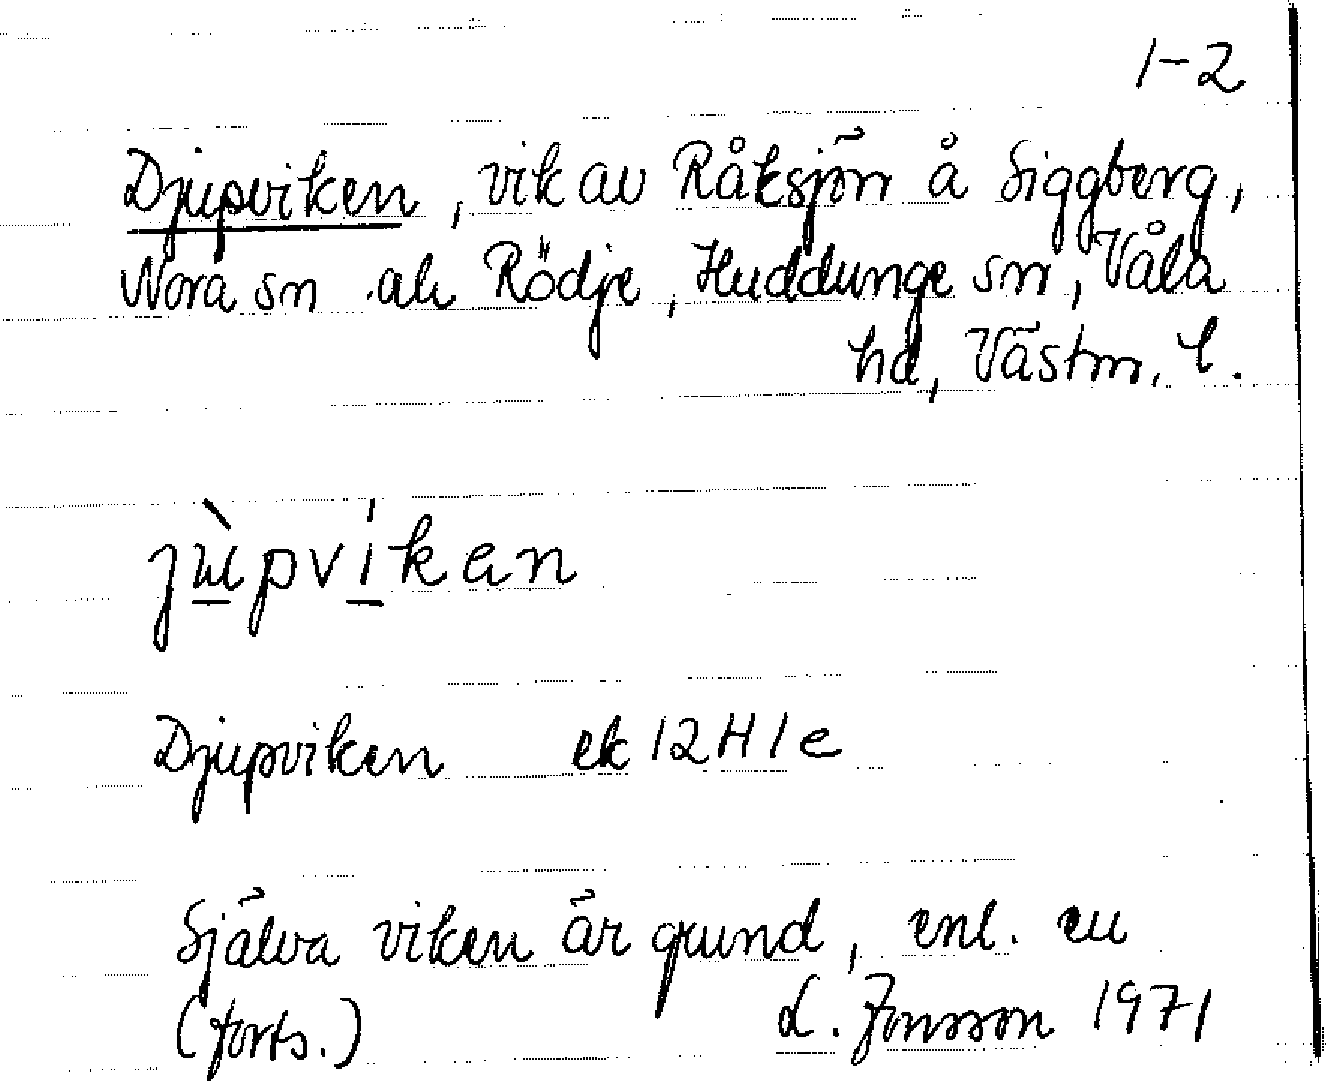 1-2
Djupviken, vik av Råksjön å Siggberg,
Nora sn ah Rödje, Huddunge sn, Våla
hd, Västm. l.
jùpvíken
Djupviken ek 12H1e
Själva viken är grund, enl. en
(forts.) L. Jonsson 1971